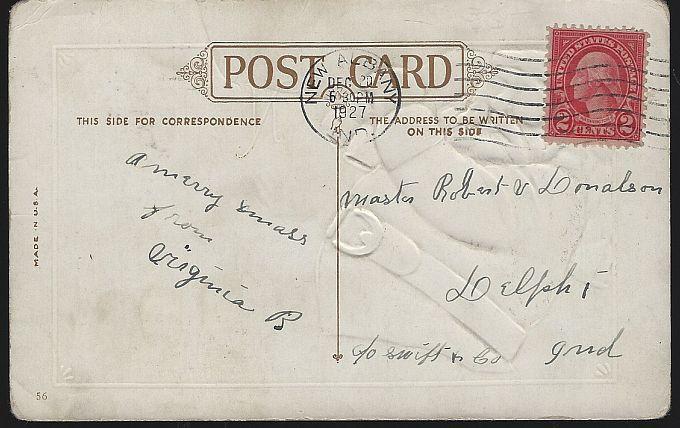 POST CARD
NEW ALBANY
DEC 20
6 30PM
1927
IND.
UNITED STATES POSTAGE
2 CENTS 2
THIS SIDE FOR CORRESPONDENCE
THE ADDRESS TO BE WRITTEN
ON THIS SIDE
A merry xmass
from
Virginia B
Master Robert V Donalson
Delphi
c/o Swift & Co Ind
MADE IN U.S.A.
56